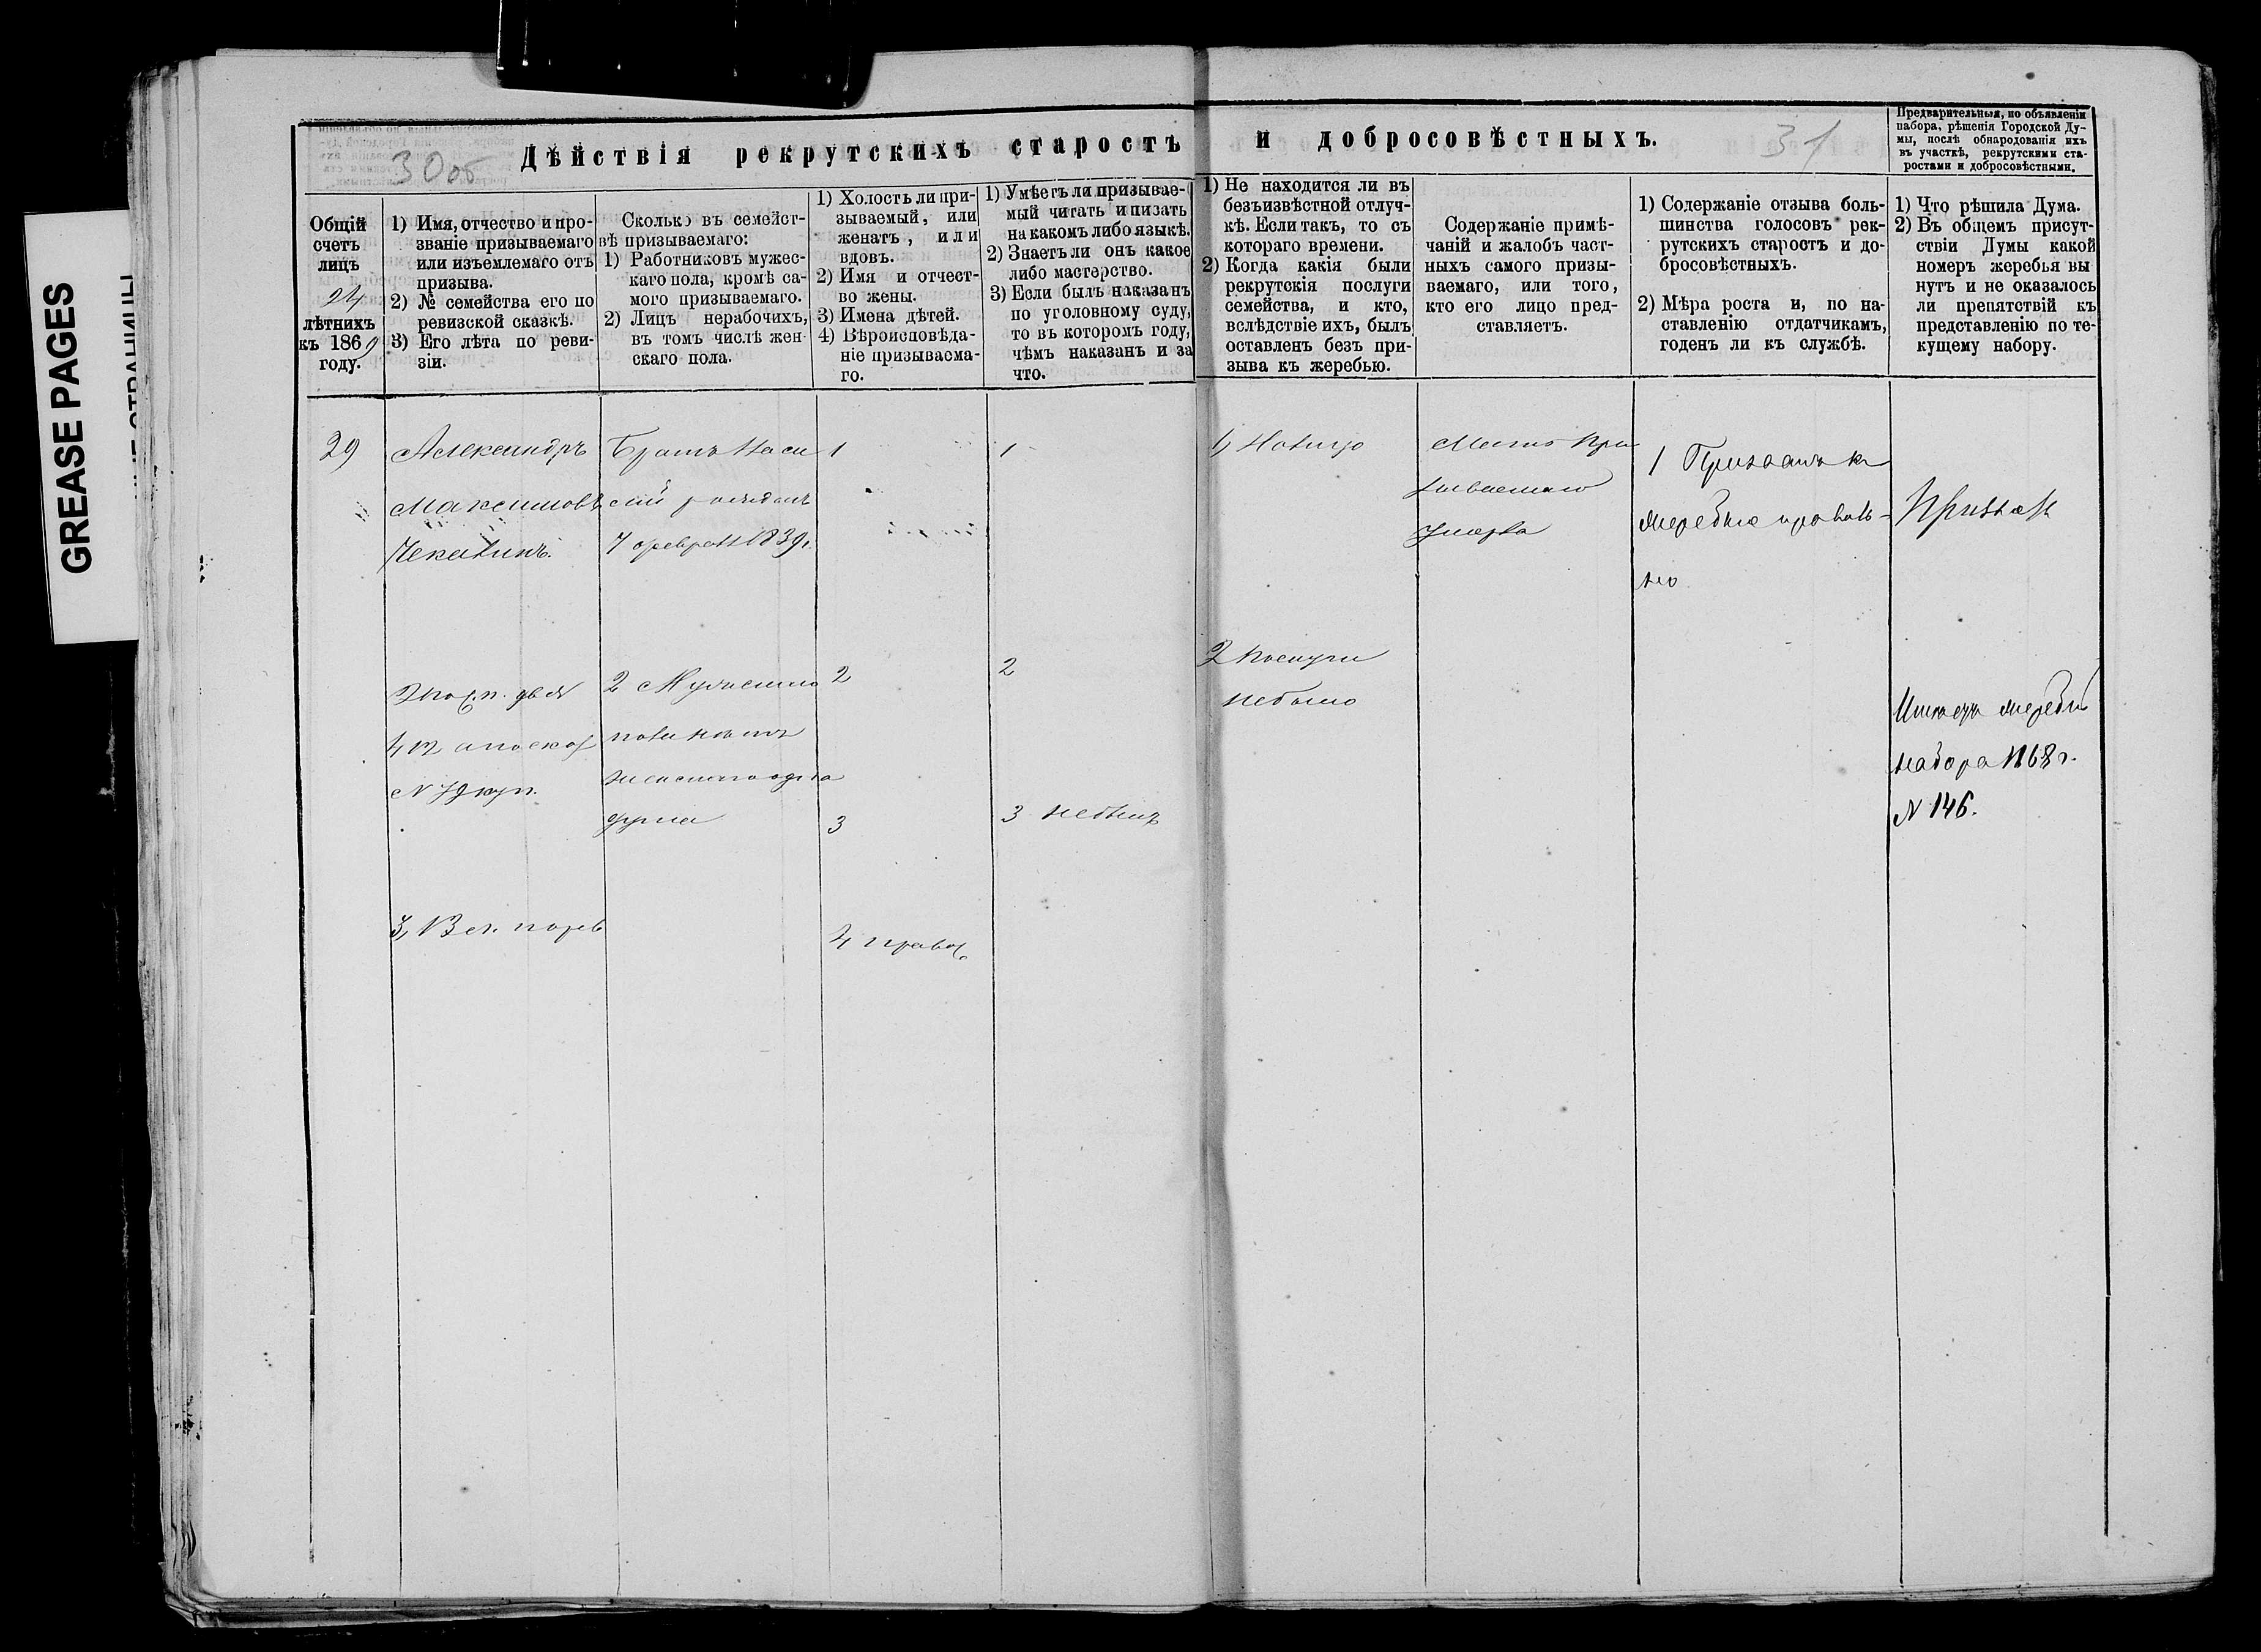 GREASE PAGES
30об
31
Дѣйствія рекрутскихъ старостъ и добросовѣстныхъ.
Предварительныя, по объявленіи
набора, рѣшенія Городской Ду-
мы, послѣ обнародованія ихъ
въ участкѣ, рекрутскими ста-
ростами и добросовѣстными.
Общій
счетъ
лицъ
24
лѣтнихъ
къ 1869
году.
1) Имя, отчество и про-
званіе призываемаго
или изъемлемаго отъ
призыва.
2) № семейства его по
ревизской сказкѣ.
3) Его лѣта по реви-
зіи.
Сколько въ семейст-
вѣ призываемаго:
1) Работниковъ мужес-
каго пола, кромѣ са-
мого призываемаго.
2) Лицъ нерабочихъ,
въ томъ числѣ жен-
скаго пола.
1) Холостъ ли при-
зываемый, или
женатъ, или
вдовъ.
2) Имя и отчест-
во жены.
3) Имена дѣтей.
4) Вѣроисповѣда-
ніе призываема-
го.
1) Умѣетъ ли призывае-
мый читать и писать
на какомъ либо языкѣ.
2) Знаетъ ли онъ какое
либо мастерство.
3) Если былъ наказанъ
по уголовному суду,
то въ которомъ году,
чѣмъ наказанъ и за
что.
1) Не находится ли въ
безъизвѣстной отлуч-
кѣ. Если такъ, то съ
котораго времени.
2) Когда какія были
рекрутскія послуги
семейства, и кто,
вслѣдствіе ихъ, былъ
оставленъ безъ при-
зыва къ жеребью.
Содержаніе примѣ-
чаній и жалобъ част-
ныхъ самого призы-
ваемаго, или того,
кто его лицо пред-
ставляетъ.
1) Содержаніе отзыва боль-
шинства голосовъ рек-
рутскихъ старостъ и до-
бросовѣстныхъ.
2) Мѣра роста и, по на-
ставленію отдатчикамъ,
годенъ ли къ службѣ.
1) Что рѣшила Дума.
2) Въ общемъ присут-
ствіи Думы какой
номеръ жеребья вы
нутъ и не оказалось
ли препятствій къ
представленію по те-
кущему набору.
29
Александръ
Максимовъ
Чекалинъ.
3, 13 ст.
Братъ Васи
лій
7 февраля 1839г.
2
1
2
3
4, правос.
1
2
3 небылъ
2 послуги
небыло
Мать при
зываемаго
1 Призванъ къ
жеребью правиль-
но
Призвать
жеребій
набора 1868г.
N 146.